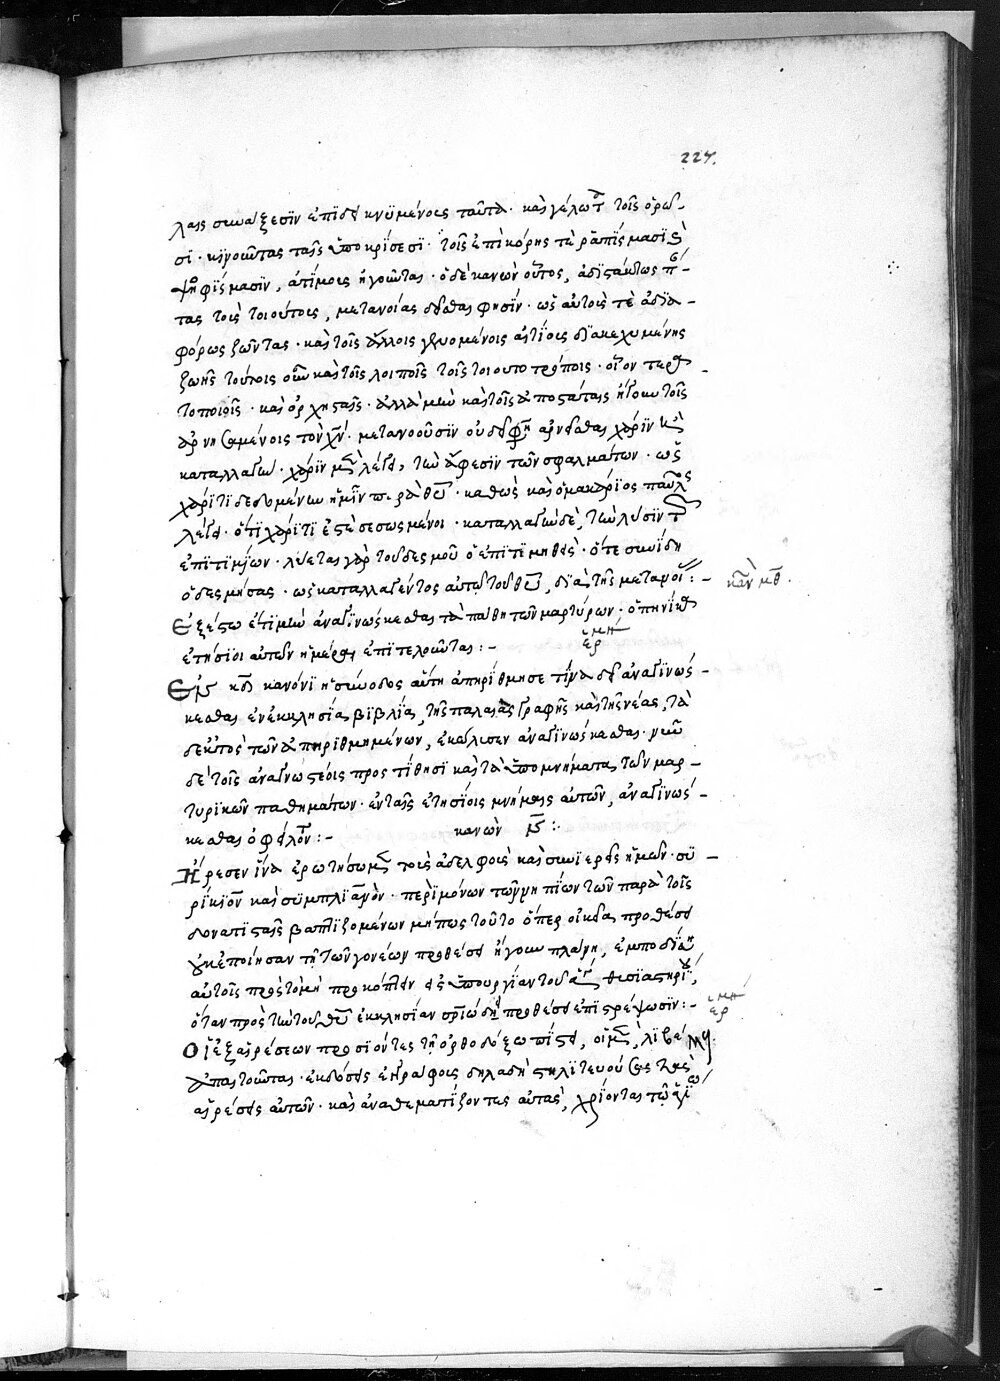 227.
λαις συνάξεσιν ἐπιδεικνύμενος ταῦτα· καὶ γέλωτ τοῖς ὁρῶ-
σι· κινοῦντας ταῖς ὑποκρίσεσι· τοῖς ἐπικόρης τὲ ῥαπίσμασι καὶ
ψηφίσμασιν, ἀτίμοις ἡγοῦνται· ὁ δὲ κανὼν οὗτος, ἀδιστάκτως π
τας τοὺς τοιούτοις, μετανοίας δέχεσθαι φησίν· ὡς αὐτοὺς τὲ ἀδια-
φόρως ζῶντας· καὶ τοῖς ἄλλοις αἰτίοις διακεχυμένης
ζωῆς τούτοις οὖν καὶ τοῖς λοιποῖς τοῖς τοιουτοτρόποις· οἷον
τοποιοῖς· καὶ ὀρχησταῖς· ἀλλὰ μὴν καὶ τοῖς ἀποστάταις ἤτοι τοῖς
ἀρνησαμένοις τὸν χν· μετανοοῦσιν οὐ δεῖ ἀρνεῖσθαι χάριν καὶ
καταλλαγὴν· χάριν λέγει, τὴν ἄφεσιν τῶν σφαλμάτων· ὡς
χάριτι δεδομένην ἡμῖν παρὰ θυ· καθὼς καὶ ὁ μακάριος παῦλος
λέγει· ὅτι χάριτι ἐστὲ σεσωσμένοι· καταλλαγὴν δὲ, τὴν λύσιν τ
ἐπιτιμίων· λύεται γὰρ τοῦ δεσμοῦ ὁ ἐπιτιμηθεὶς· ὅτε συνίδη
ὁ δεσμήσας· ὡς καταλλαγέντος αὐτῷ τοῦ θυ, διὰ τῆς μετανοί:-
καν μθ.
Ἐξέστω ἔτι μὴν ἀναγινώσκεσθαι τὰ πάθη τῶν μαρτύρων· ὁπηνίκα
ἐτήσιοι αὐτῶν ἡμέραι ἐπιτελοῦνται:-
ἑρμη
Ἐν κδ κανόνι ἡ σύνοδος αὕτη ἀπηρίθμησε τίνα δεῖ ἀναγινώσ-
κεσθαι ἐν ἐκκλησίᾳ βιβλία, τῆς παλαιᾶς γραφῆς καὶ τῆς νέας, τὰ
δ' ἐκτὸς τῶν ἀπηριθμημένων, ἐκώλυσεν ἀναγινώσκεσθαι· νῦν
δὲ τοῖς ἀναγνωστέοις προστίθησι καὶ τὰ ὑπομνήματα τῶν μαρ-
τυρικῶν παθημάτων· ἐν ταῖς ἐτησίοις μνήμαις αὐτῶν, ἀναγινώσ-
κεσθαι ὀφείλον:-
κανὼν μς:·
Ἤρεσεν ἵνα ἐρωτήσωμεν τοὺς ἀδελφοὺς καὶ συνιερεῖς ἡμῶν· συ-
ρίκιον καὶ συμπλικιανὸν· περὶ μόνων τῶν νηπίων τῶν παρὰ τοῖς
δονατισταῖς βαπτιζομένων μήπως τοῦτο ὅπερ οἰκείᾳ προθέσει
οὐκ ἐποίησαν τῇ τῶν γονέων προθέσει ἤγουν πλάνη, ἐμποδίσῃ
αὐτοῖς πρὸς τὸ μὴ προκόπτειν εἰς ὑπουργίαν τοῦ ἁγίου θυσιαστηρίου,
ὅταν πρὸς τὴν τοῦ θεοῦ ἐκκλησίαν σωτηριώδη προθέσει ἐπιστρέψωσιν:-
ἑρμη
Οἱ ἐξ αἱρέσεων προσιόντες τῇ ὀρθοδόξῳ πίστει, οἱ μὲν λιβέλλους
ἀπαιτοῦνται· ἐκδόσεις ἐγγράφοις δηλαδὴ στηλιτευούσας τὰς
αἱρέσεις αὐτῶν· καὶ ἀναθεματίζοντες αὐτὰς, χρίονται τῷ ἁγίῳ